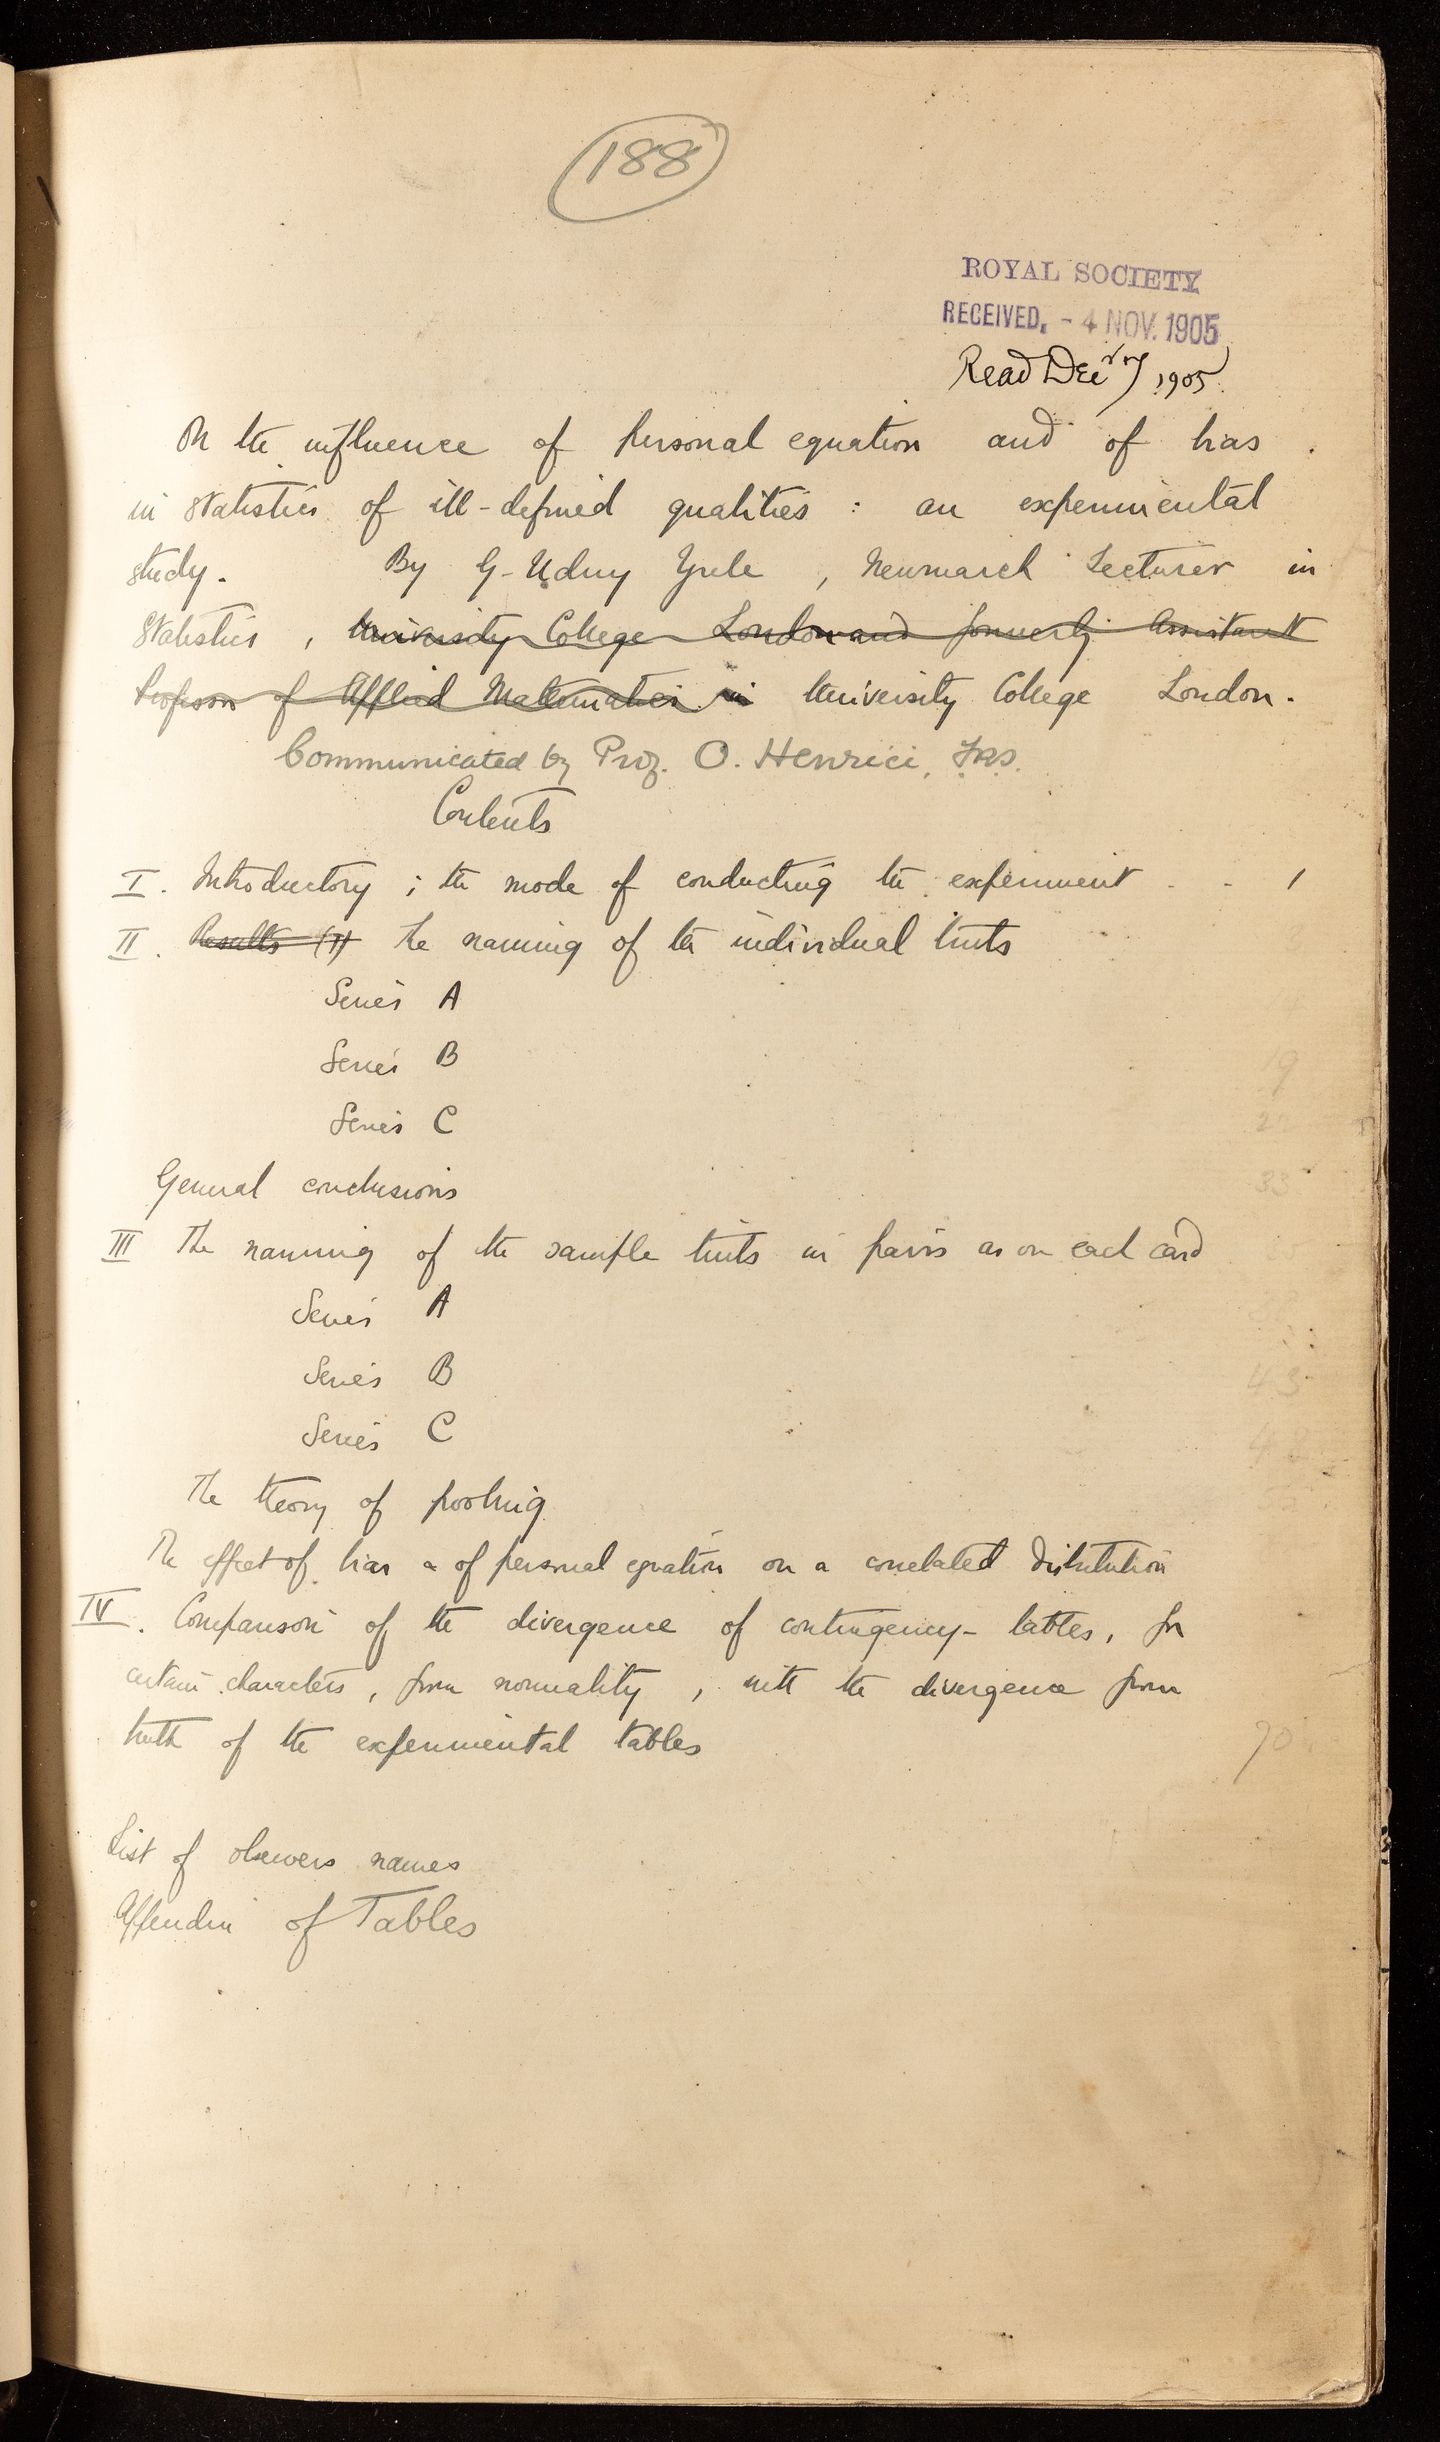 188
ROYAL SOCIETY
RECEIVED. - 4 NOV. 1905
Read Dec 7 1905.
On the influence of personal equation and of bias
in statistics of ill-defined qualities : an experimental
study. By G-Udny Yule, Newmarch Lecturer in
Statistics, University College London and formerly Assistant
Professor of Applied Mathematics in University College London.
Communicated by Prof. O. Henrici, FRS.
Contents
I. Introductory ; the mode of conducting the experiment . . 1
II. Results (1) The naming of the individual tints
Series A
Series B
19
Series C
General conclusions
33
III The naming of the sample tints in pairs as on each card
Series A
Series B
43
Series C
The theory of pooling
The effect of bias & of personal equation on a correlated distribution
IV. Comparison of the divergence of contingency-tables, for
certain characters, from normality, with the divergence from
truth of the experimental tables
70
List of observers names
Appendix of Tables